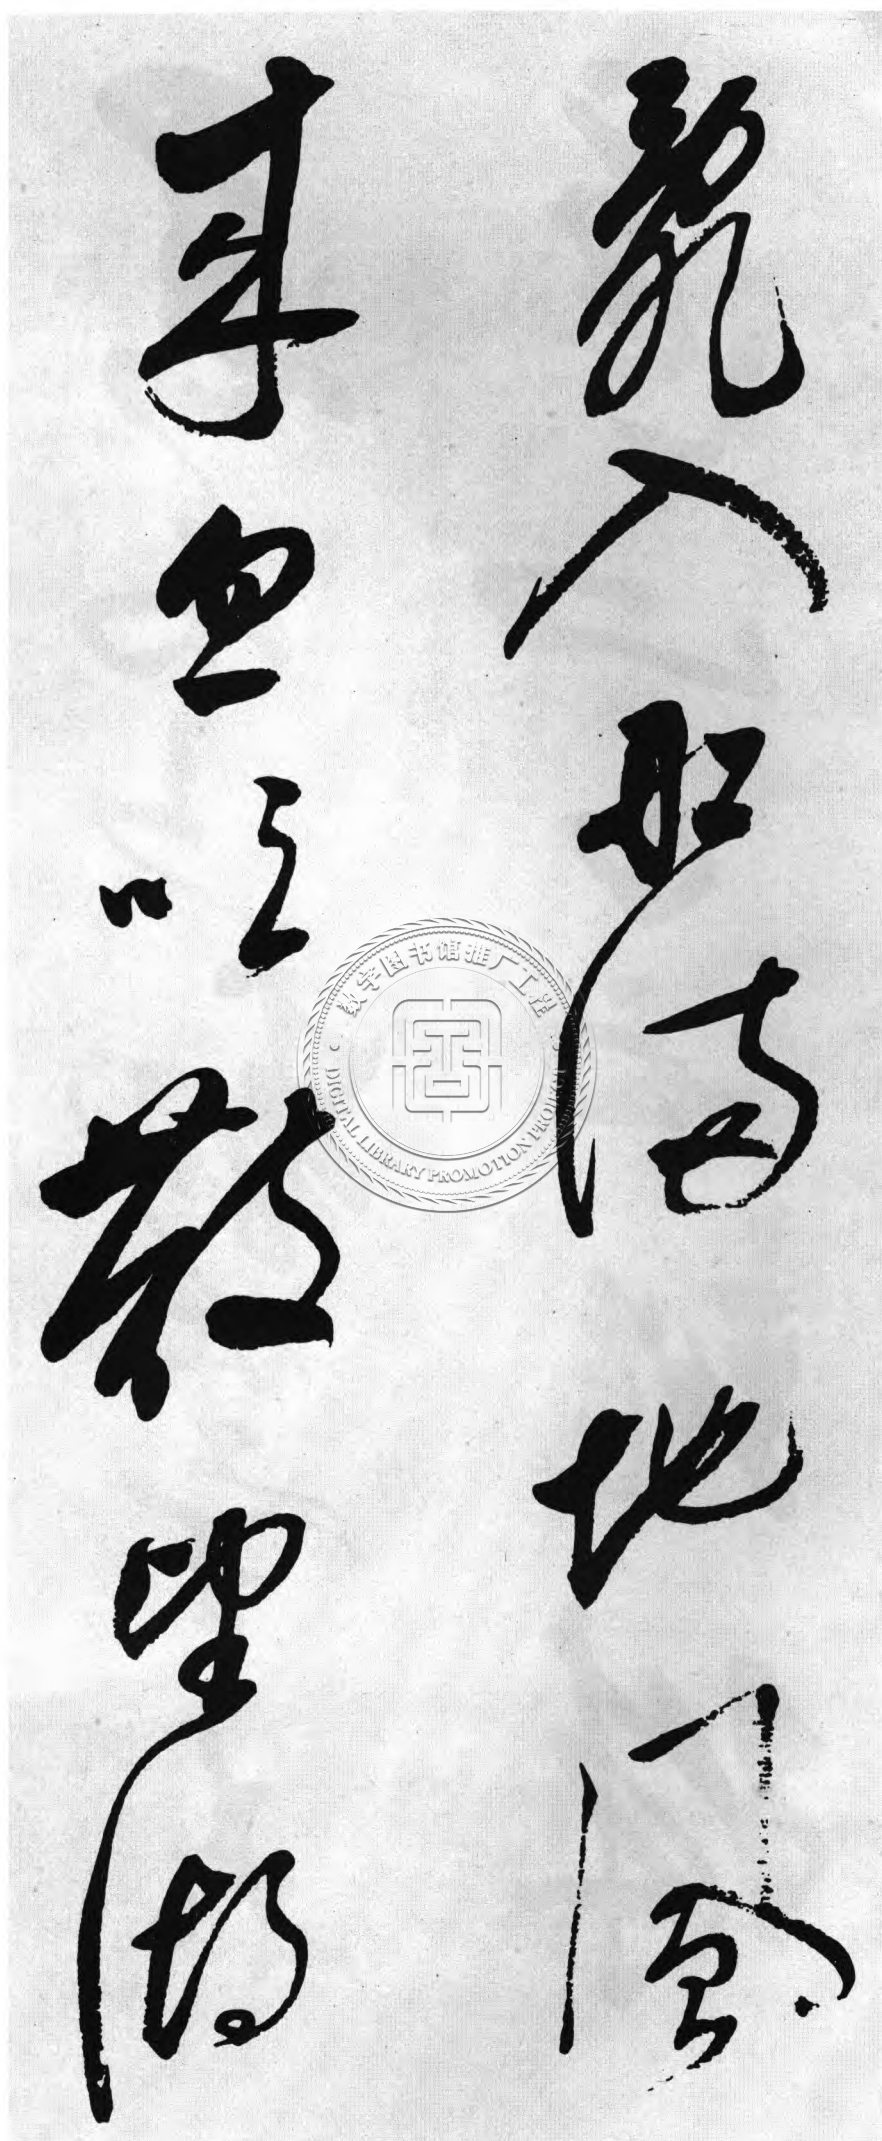 亂入船满地風
来忽吹散望湖
数字图书馆推广工程
DIGITAL LIBRARY PROMOTION PROJECT